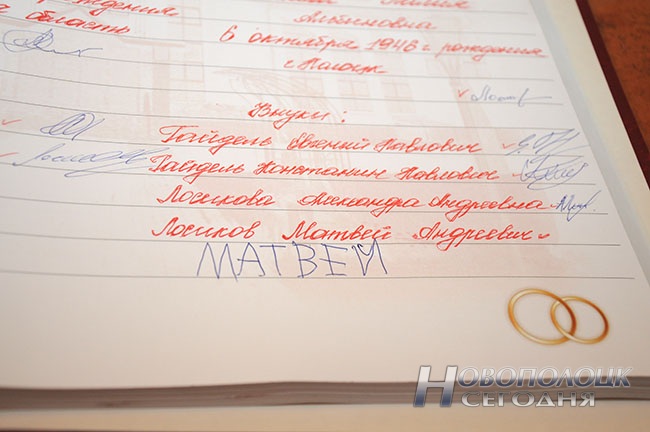 рождения
Лилия
область
Альбиновна
6 октября 1946 г. рождения
г. Полоцк
Внуки:
Гайдель Евгений Павлович
Гайдель Константин Павлович
Лосикова Александра Андреевна
Лосиков Матвей Андреевич
МАТВЕЙ
НОВОПОЛОЦК
СЕГОДНЯ